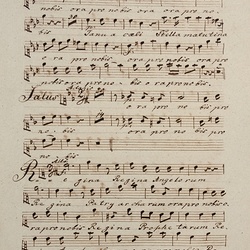 nobis ora pro nobis ora pro no-
bis Janua cœli Stella matutina
ora pro nobis ora pro nobis
nobis ora pro nobis ora pro nobis
Salus ora pro nobis pro
no bis ora pro nobis pro
no bis
R
gina Regina Angelorum
Regina Patryarcharum ora pro nobis o
ra pro nobis Regina Prophetarum Re